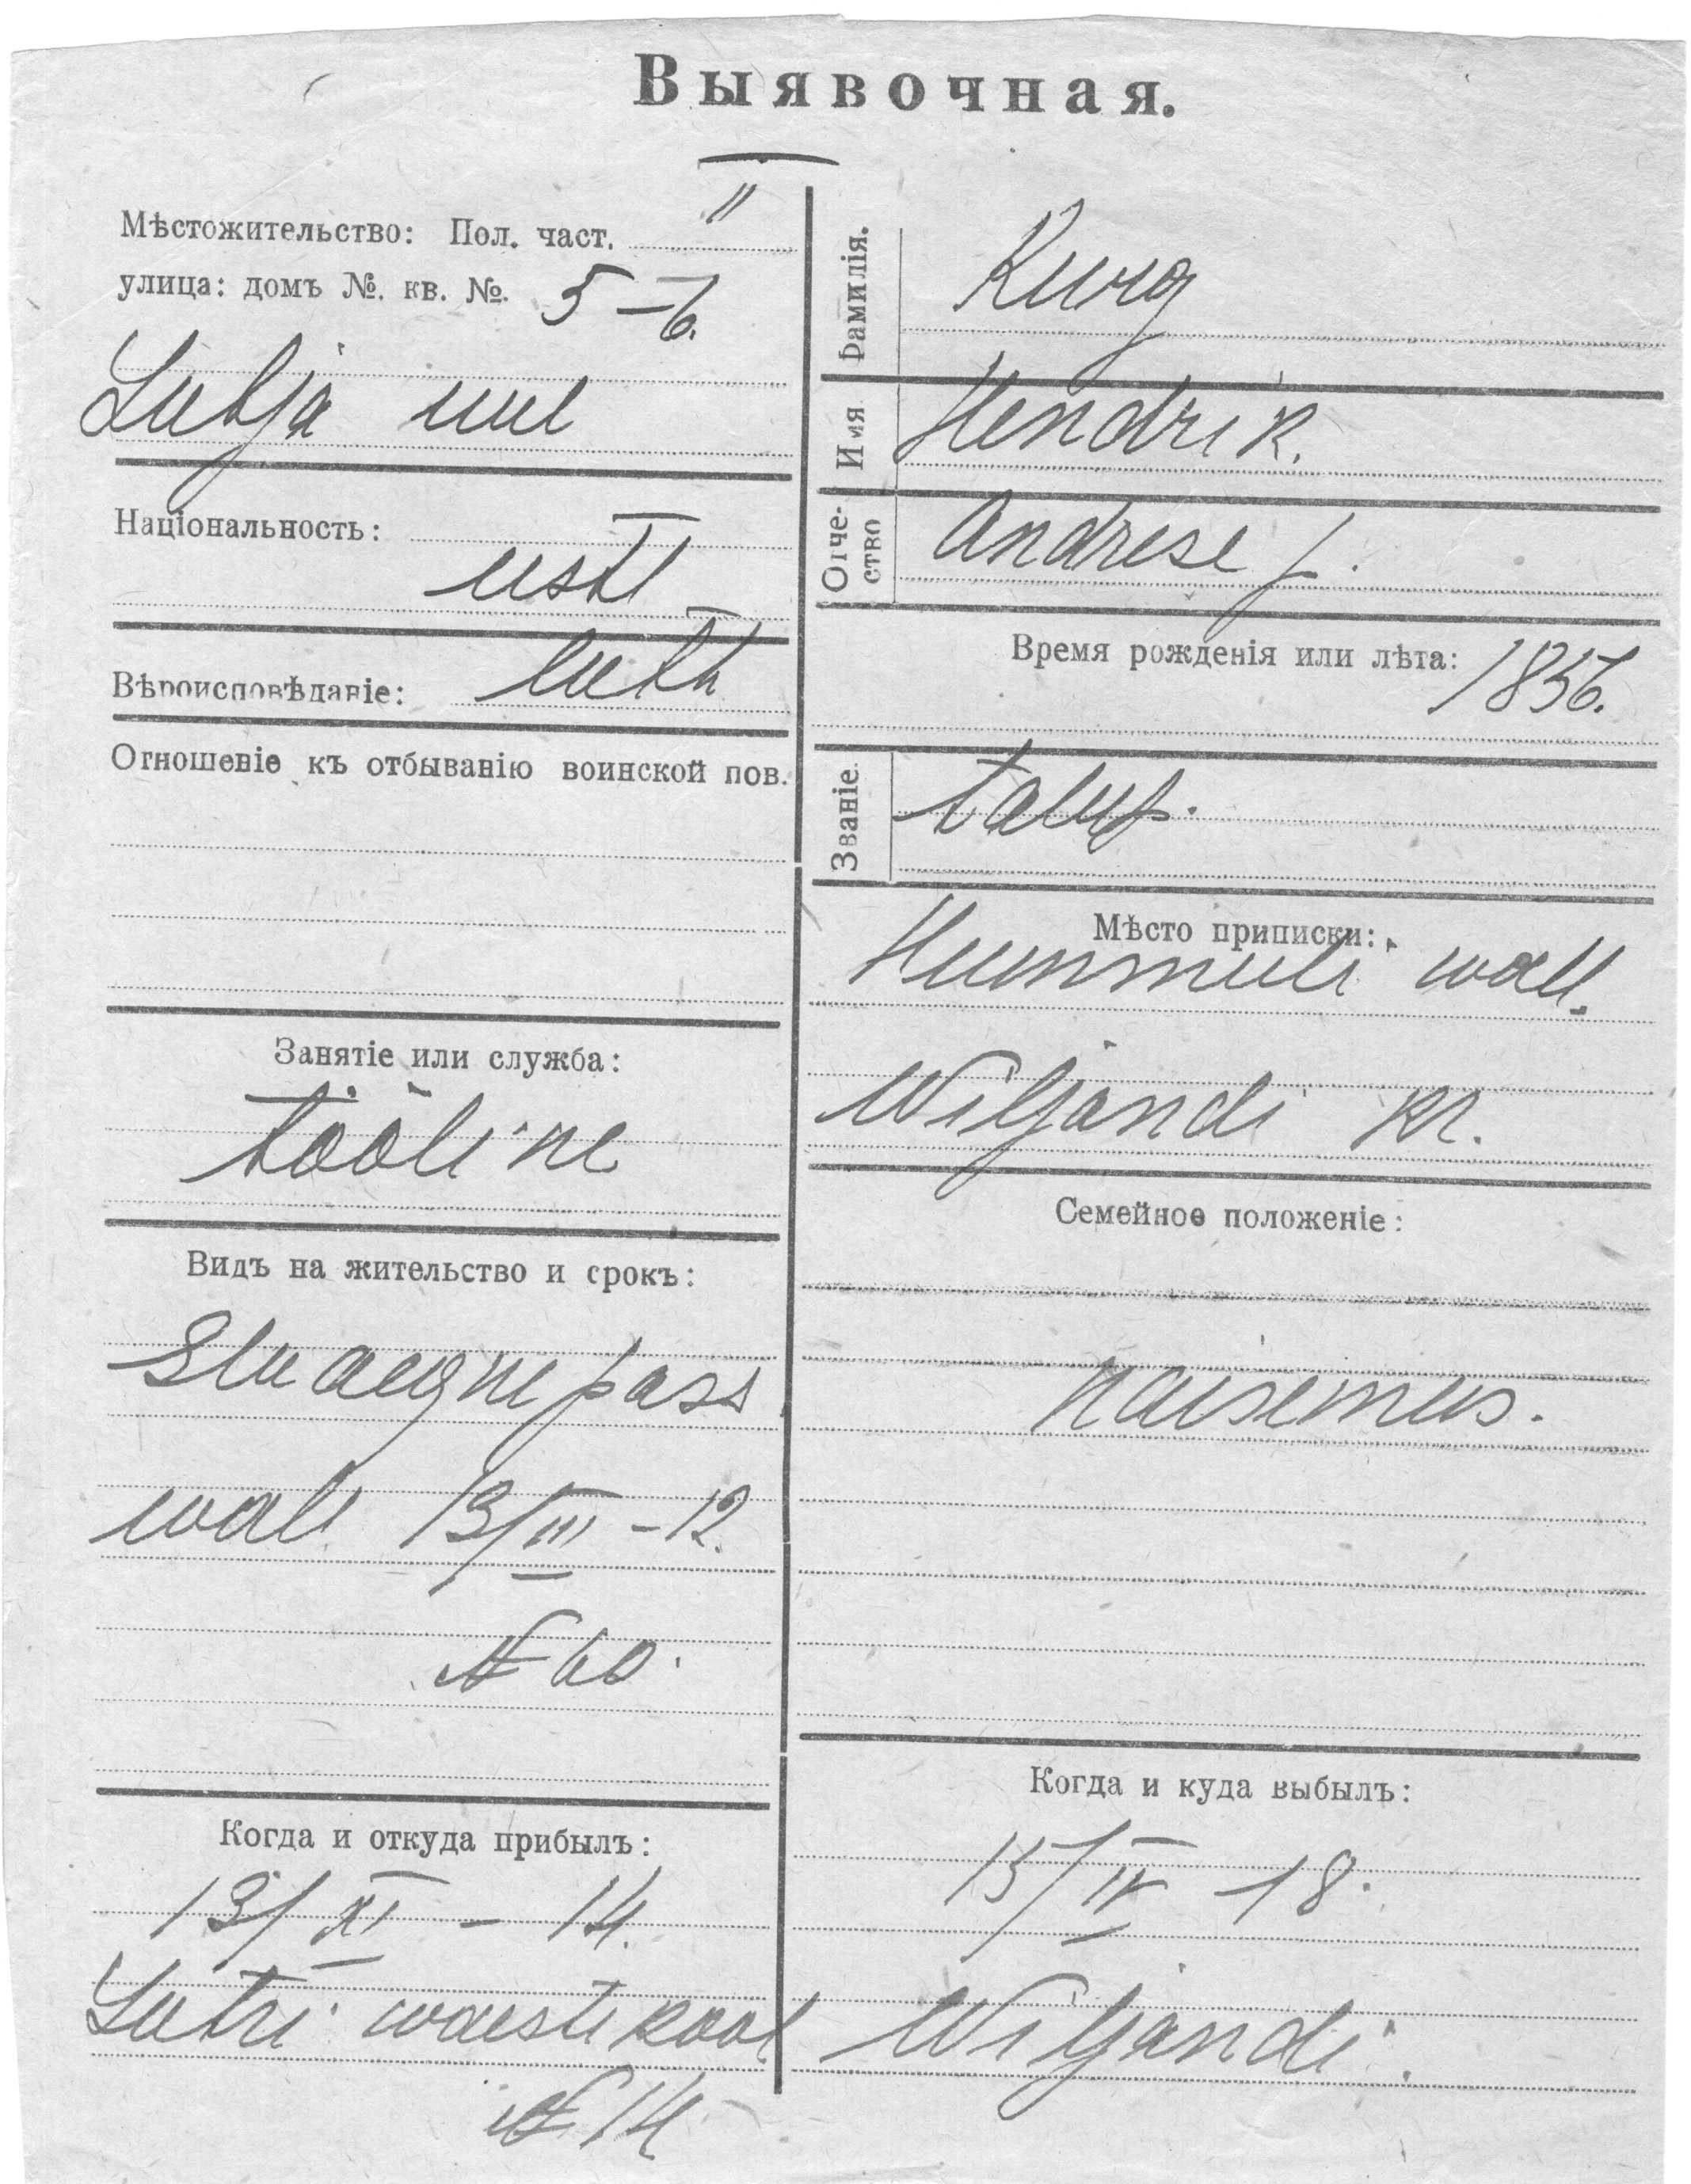 Выявочная.
Мѣстожительство: Пол. част. II
улица: домъ №. кв. №. 5-6.
Lubja uul
Національность:
eesti
Вѣроисповѣданіе: luth
Отношеніе къ отбыванію воинской пов.
Занятіе или служба:
tööline
Видъ на жительство и срокъ:
Elu aegne pass
wall 13/III -12.
№ 60.
Когда и откуда прибылъ:
13/XI - 14.
Lutri waestekool
№ 14
Фамилія. Kurg
Имя Hendrik.
Отчество Andrese p.
Время рожденія или лѣта: 1856.
Званіе. talup.
Мѣсто приписки:
Hummuli wall.
Wiljandi kr.
Семейное положеніе:
naisemees.
Когда и куда выбылъ:
15/IV -18.
Wiljandi.